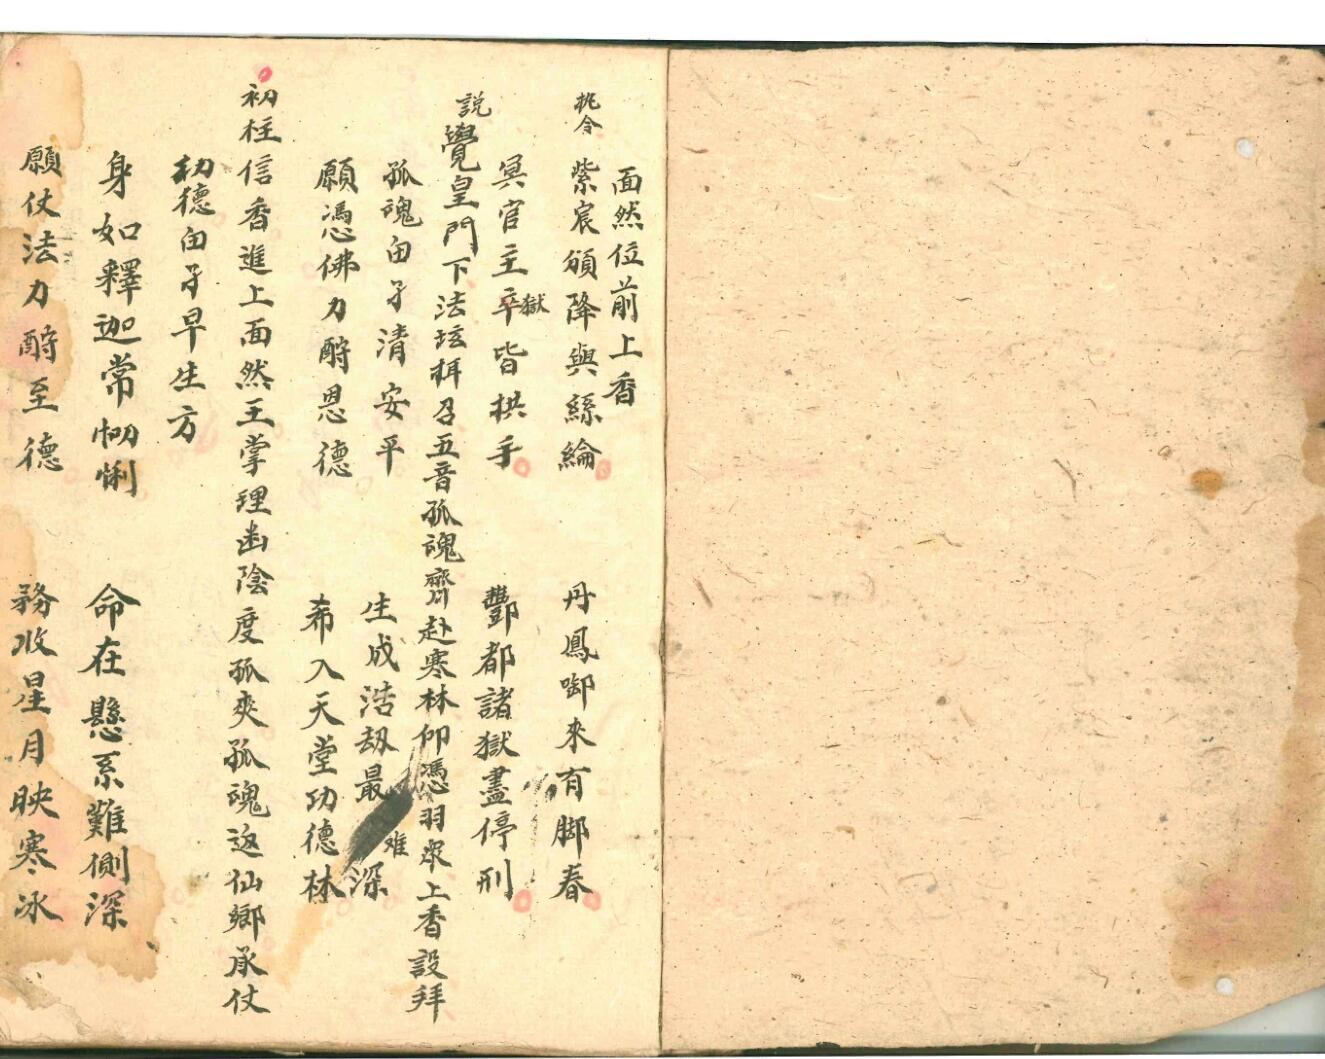 面然位前上香
紫宸頒降與絲綸 丹鳳啣來有脚春
冥官主卒獄皆拱手 酆都諸獄盡停刑
説覺皇門下法玹拜召五音孤魂齊赴寒林仰憑羽衆上香設拜
孤魂由子清安平 生成浩劫最难深
願憑佛力酧恩德 希入天堂功德林
初柱信香進上面然王掌理幽陰度孤爽孤魂返仙鄉承仗
德由子早生方
身如釋迦常 命在懸系難側深
願仗法力酧至德 務收星月映寒冰